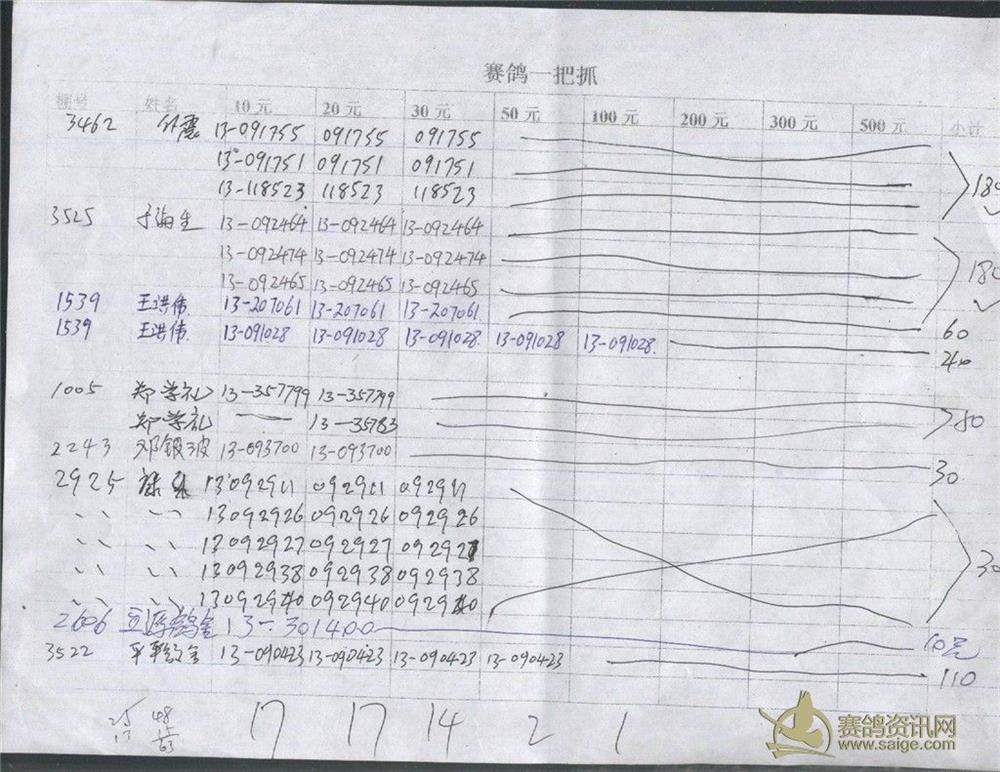 赛鸽一把抓
棚号 姓名 10元 20元 30元 50元 100元 200元 300元 500元 小计
3462 13-091755 091755 091755
13-091751 091751 091751
13-118523 118523 118523 180
3525 于海生 13-092464 13-092464 13-092464
13-092474 13-092474 13-092474 180
13-092465 13-092465 13-092465
1539 王洪伟 13-207061 13-207061 13-207061 60
1539 王洪伟 13-091028 13-091028 13-091028 13-091028 13-091028
1005 郑学礼 13-357799 13-357799
郑学礼 13-35783 80
2243 邓银波 13-093700 13-093700 30
2925 13092911 092911 092911
、、 、、 13092926 092926 092926
、、 、、 13092927 092927 092927 30
、、 、、 13092938 092938 092938
、、 、、 13092940 092940 092940
2606 13-301400 10元
3522 13-090423 13-090423 13-090423 13-090423 110
17 17 14 2 1
赛鸽资讯网
www.saige.com